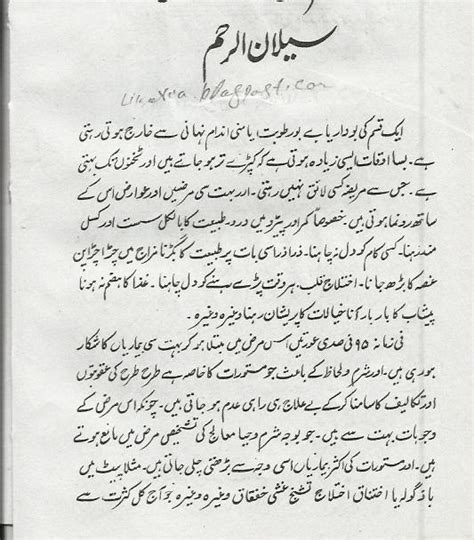 سیلان الرحم
ایک قسم کی بودار یا بے بو رطوبت یا منی اندام نہانی سے خارج ہوتی رہتی
ہے۔ بسا اوقات ایسی زیادہ ہوتی ہے کہ کپڑے تر ہو جاتے ہیں اور ٹخنوں تک بہتی
ہے۔ جس سے مریضہ کسی لائق نہیں رہتی۔ اور بہت سی مرضیں اور عوارض اس کے
ساتھ رونما ہوتی ہیں۔ خصوصاً کمر اور پیڑو میں درد۔ طبیعت کا بالکل سست اور کسل
مند رہنا۔ کسی کام کو دل نہ چاہنا۔ ذرا ذراسی بات پر طبیعت کا بگڑنا مزاج میں چڑا چڑا پن
غصہ کا بڑھ جانا۔ اختلاج قلب۔ ہر وقت پڑے رہنے کو دل چاہنا۔ غذا کا ہضم نہ ہونا
پیشاب کا بار بار آنا خیالات کا پریشان رہنا وغیرہ وغیرہ۔
فی زمانہ ۹۵ فی صدی عورتیں اس مرض میں مبتلا ہو کر بہت سی بیماریاں کا شکار
ہو رہی ہیں۔ اور شرم ولحاظ کے باعث جو مستورات کا خاصہ ہے طرح طرح کی عقوبتوں
اور تکالیف کا سامنا کر کے بے علاج ہی راہی عدم ہو جاتی ہیں۔ چونکہ اس مرض کے
وجوہات بہت سے ہیں۔ جو بوجہ شرم وحیا معالج کی تشخیص مرض میں مانع ہوتے
ہیں۔ اور مستورات کی اکثر بیماریاں اسی وجہ سے بڑھتی چلی جاتی ہیں۔ مثلاً پیٹ میں
باؤ گولہ یا اختناق اختلاج تشنج غشی خفقان وغیرہ وغیرہ جو آج کل کثرت سے